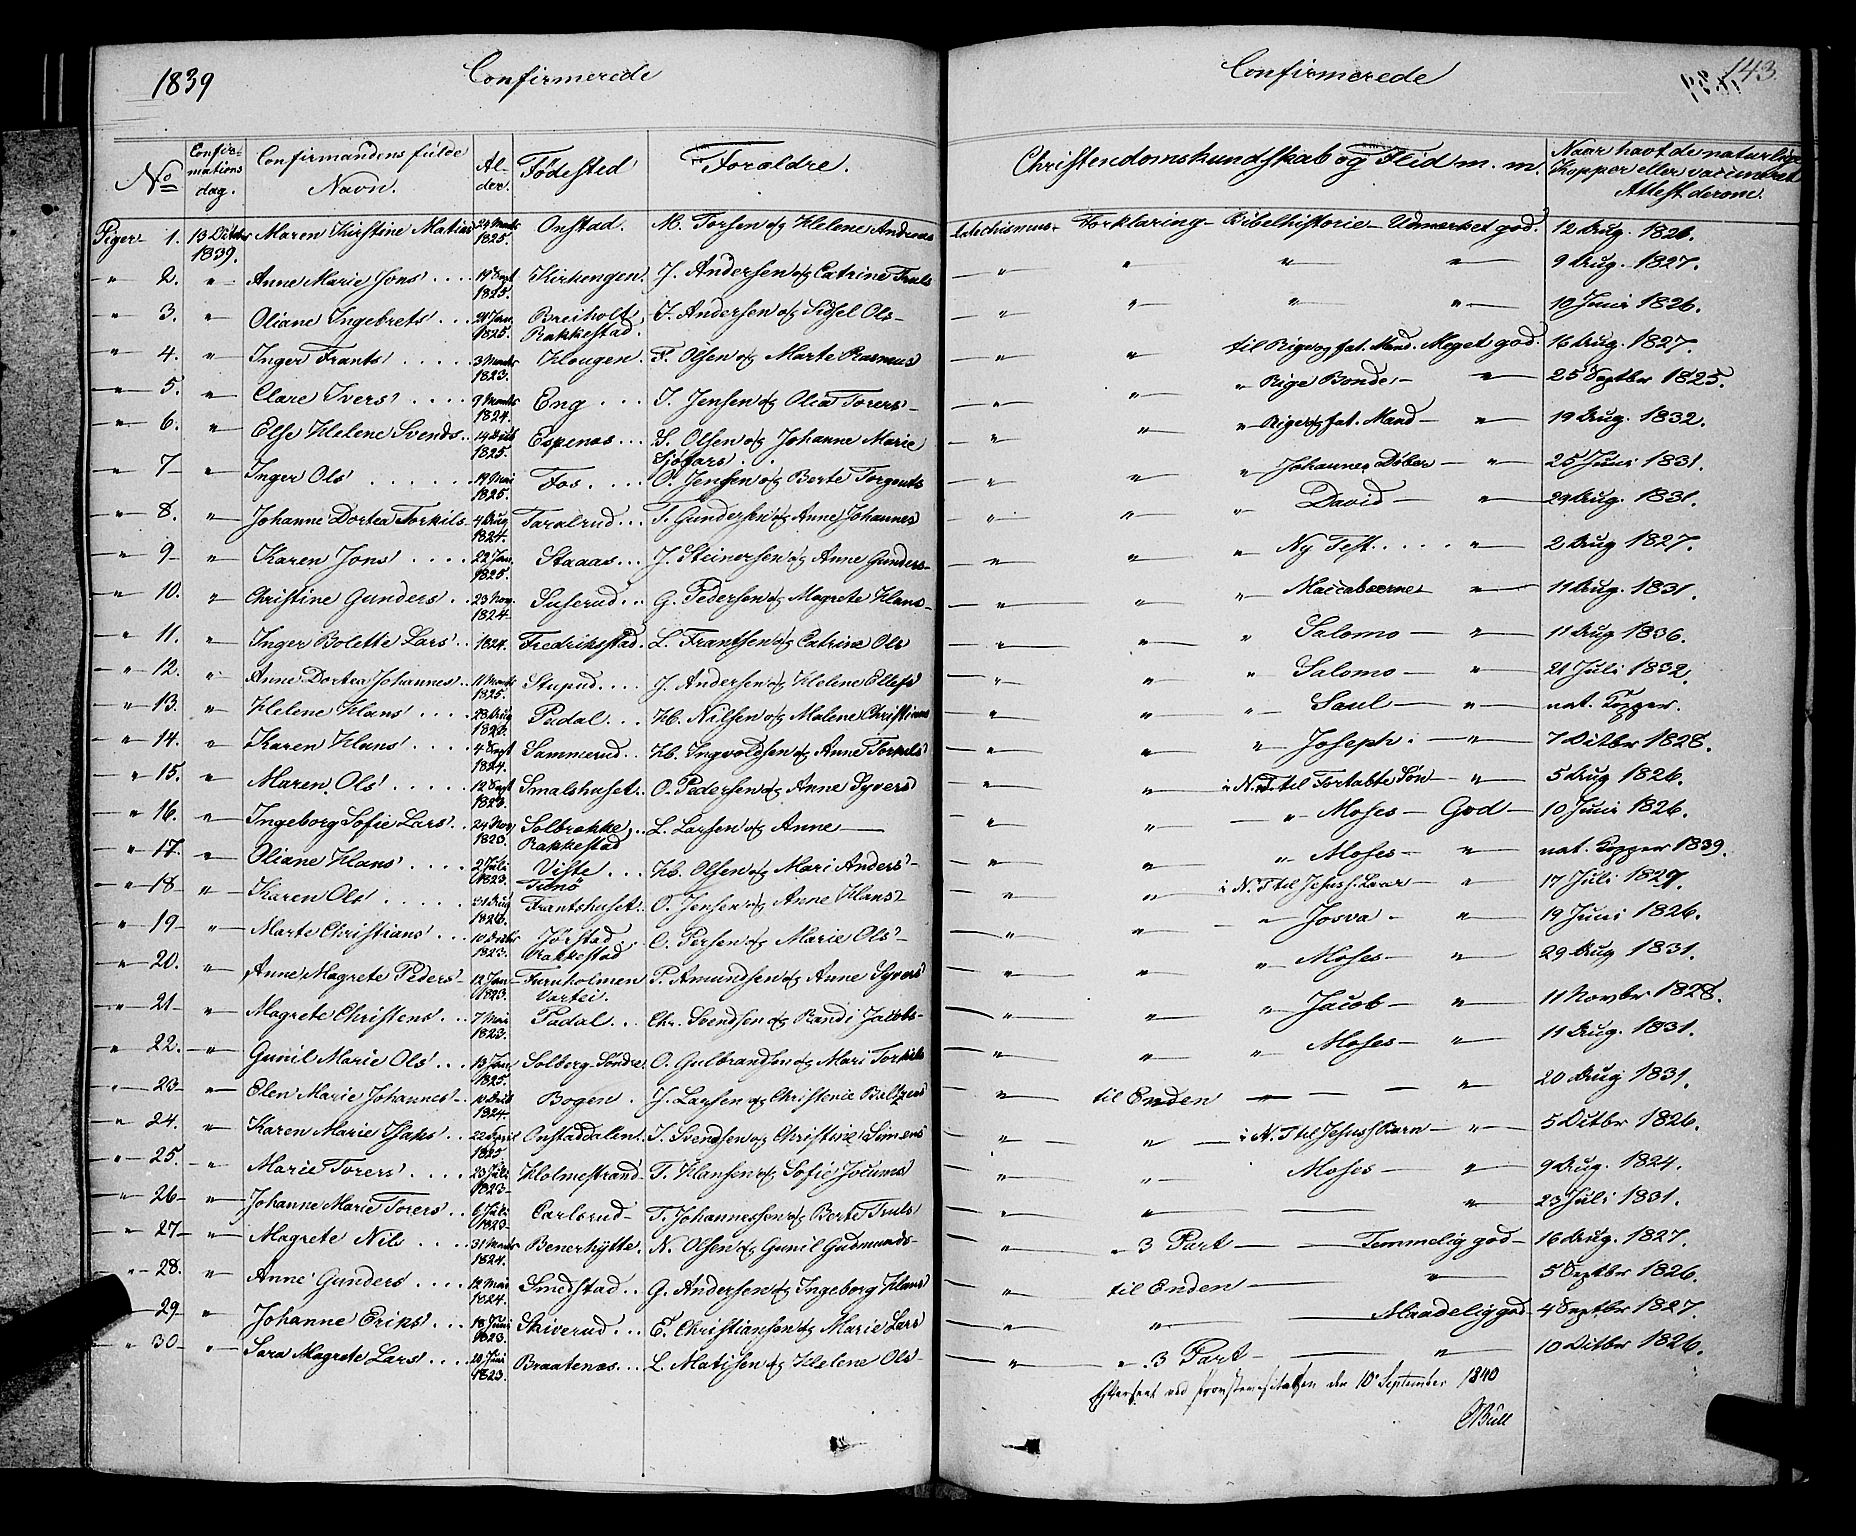 1839 Confirmerede
No Confirmations dag. Confirmandens fulde Navn. Alder. Fødested Forældre.
Piger 1. 13 Octbr 1839. Maren Kirstine Matias 24 Marts 1825. Onstad. M. Torsen og Helene Andreas
" 2. " Anne Marie Jons' .... 14 Sept 1825. Kirkengen. J. Andersen og Catrine Truls
" 3. " Oliane Ingebrets' ... 1825. Breiholt, Rakkestad. I. Andersen og Sidsel Ols-
" 4. " Inger Frants' .... 3 Marts 1823. Klougen. F. Olsen og Marte Rasmus
" 5. " Clare Ivers' .... 9 Marts 1824. Eng ... I. Jensen og Olia Torers-
" 6. " Else Helene Svends.. 1825. Espenæs ... S. Olsen og Johanne Marie Sjøfars'..
" 7- " Inger Ols' ..... 14 Mai 1825. Fos .... O. Jensen og Berte Torgents
" 8. " Johanne Dortea Torkils. 4 Aug 1824. Taralrud ... T. Gundersen og Anne Johannes
" 9. " Karen Jons' .... 22 Jan. 1825. Staaas ... J. Steinersen og Anne Gunders-
" 10. " Christine Gunders .. 23 Nov. 1824. Suserud ... G. Pedersen og Magrete Hans-
" 11. " Inger Bolette Lars' .. 1824. Fredrikstad. L. Frantsen og Catrine Ols
" 12. " Anne Dortea Johannes.. 11 Marts 1825. Stupud .... J. Andersen og Helene Ellefs
" 13. " Helene Hans' .... 23 Aug Padal ... H. Nilsen og Malene Christians
" 14. " Karen Hans' .... 4 Sept 1824. Sammerud .. H. Ingvoldsen og Anne Torkels'
" 15. " Maren Ols' ..... 12 Sept 1823. Smalshuset.. O. Pedersen og Anne Syvers
" 16. " Ingeborg Sofie Lars'.. 24 Nov 1823. Solbrække .. Rakkestad L. Larsen og Anne —
" 17. " Oliane Hans' .... 2 Juli 1823. Viste ... H. Olsen og Mari Anders'-
" 18- " Karen Ols' ...... 31 Aug Frantshuset.. O. Jensen og Anne Hans'-
" 19- " Marte Christians' ... 10 Octbr 1823. Jørstad. Rakkestad C. Persen og Marie Ols'-
" 20. " Anne Magrete Peders'- 12 Jan 1823. Furuholmen Vartei. P. Amundsen og Anne Syvers'
" 21- " Magrete Christens ... 7 Mai 1823. Padal ... Chr. Svendsen og Randi Jacobs-
" 22. " Gunil Marie Ols' ... 13 Jan. 1825. Solberg Søndre O. Gulbrandsen og Mari Torkils
" 23- " Elen Marie Johannes'- 1824. Bogen . J. Larsen og Christenie Baltzers
" 24. " Karen Marie Isaks'.. 22 April 1825 Onstaddalen. I. Svendsen og Christine Simens
" 25. " Marie Torers' .... 23 Juli 1823- Holmestrand T. Hansen og Sofie Jocums
" 26- " Johanne Marie Torers'.. 6 Juli 1823- Carlsrud- T. Johannessen og Berte Truls'
" 27- " Magrete Nils ... 31 Marts 1824. Benerhytte. N. Olsen og Gunil Gudmunds-
" 28. " Anne Gunders' .... 14 Mai 1824. Smedstad .. G. Andersen og Ingeborg Hans'
" 29- " Johanne Eriks' .... 18 Juni 1823. Skiverud ... E. Christiansen og Marie Lars'
" 30- " Sara Magrete Lars' ... 20 Juni 1823. Braatenæs ... L. Matisen og Helene Ols-
Confirmerede 143.
Christendomskundskab og Flid m. m. Naar havt de naturlige Kopper eller vaccineret Attest derom.
Catechismus- Forklaring- Bibelhistorie- Udmerket god. 12 Aug. 1826.
" " " " 9 Aug. 1827.
" " " " 10 Juni 1826.
" " til Rige og fat. Mand. Meget god. 16 Aug. 1827.
" " " Rige Bonde- " 25 Septbr 1825.
" " " Rige og fat. Mand- " 19 Aug. 1832.
" " " Johannes Døber- " 25 Juni 1831.
" " " David- " 29 Aug. 1831.
" " " Ny Test..... " 2 Aug 1827.
" " " Maccabæerne " 11 Aug. 1831.
" " " Salomo- " 11 Aug 1836.
" " " Salomo- " 21 Juli 1832.
" " " Saul- " nat. Kopper.
" " " Joseph. " 7 Octbr 1828.
" " i N. T til Fortabte Søn- " 5 Aug 1826.
" " " Moses- God- 10 Juni 1826.
" " " Moses- " nat. Kopper 1839.
" " i N. T til Jesus f. Laar- " 17 Juli 1827.
" " " Josva- " 19 Juni 1826.
" " " Moses- " 29 Aug 1831.
" " " Jacob- " 11 Novbr 1828.
" " " Moses- " 11 Aug. 1831.
" til Enden " — " 20 Aug 1831.
" " i N. T til Jesus f Barn- " 5 Octbr 1826.
" " Moses- " 9 Aug. 1824.
" " — " 23 Juli 1831.
" " 3 Part — Temmelig god- 16 Aug. 1827.
" til Enden — " 5 Septbr 1826.
" " — Maadelig god- 4 Septbr 1827.
" " 3 Part- — " 10 Octbr 1826.
Efterseet ved Provstevisitatsen den 10 September 1840
Bull